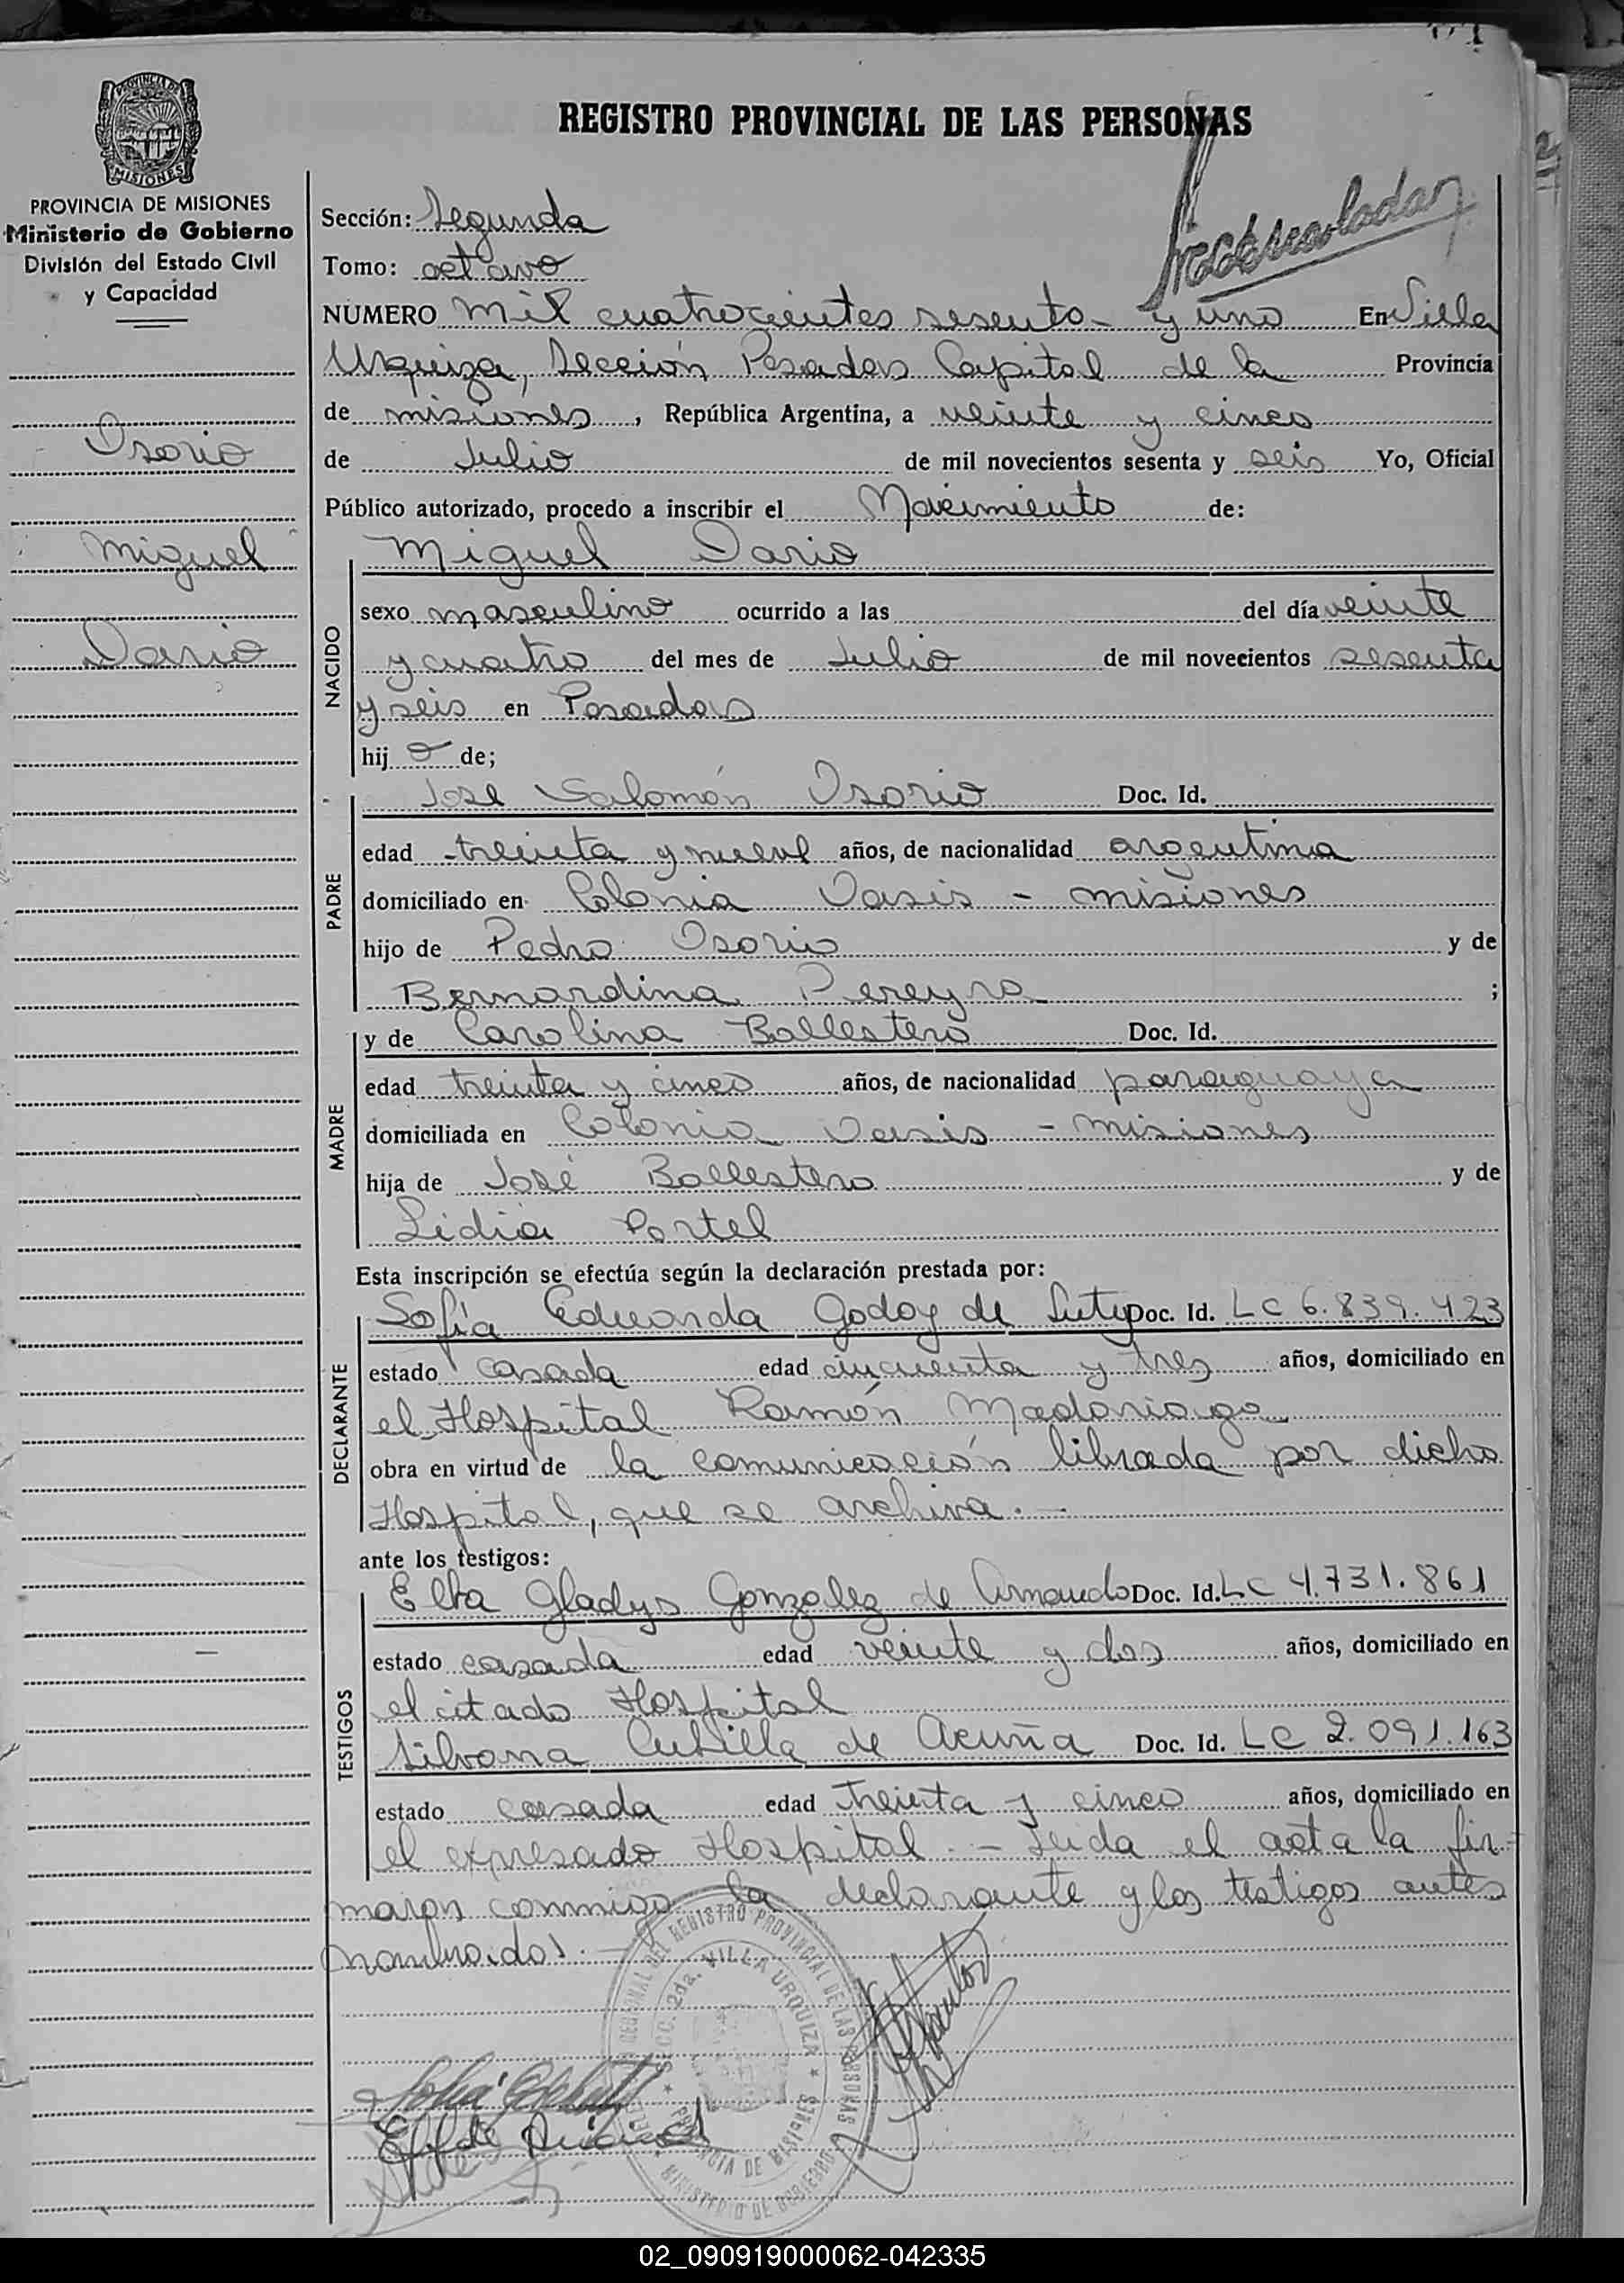 REGISTRO PROVINCIAL DE LAS PERSONAS
PROVINCIA DE
MISIONES
PROVINCIA DE MISIONES
Ministerio de Gobierno
División del Estado Civil
y Capacidad
Osorio
Miguel
Dario
Sección: Segunda
Tomo: octavo
NUMERO mil cuatrocientos sesenta y uno En Villa
Urquiza, Sección Posadas Capital de la Provincia
de misiones, República Argentina, a veinte y cinco
de Julio de mil novecientos sesenta y seis Yo, Oficial
Público autorizado, procedo a inscribir el Nacimiento de:
NACIDO
Miguel Dario
sexo masculino ocurrido a las del día veinte
y cuatro del mes de Julio de mil novecientos sesenta
y seis en Posadas
hij o de;
PADRE
Jose Salomón Osorio Doc. Id.
edad treinta y nueve años, de nacionalidad argentina
domiciliado en Colonia Oasis - misiones
hijo de Pedro Osorio y de
Bernardina Pereyra ;
MADRE
y de Carolina Ballestero Doc. Id.
edad treinta y cinco años, de nacionalidad paraguaya
domiciliada en Colonia Oasis - misiones
hija de José Ballestero y de
Lidia Portel
Esta inscripción se efectúa según la declaración prestada por:
DECLARANTE
Sofía Eduarda Godoy de Doc. Id. LC 6.839.423
estado casada edad cincuenta y tres años, domiciliado en
el Hospital Ramón Madariaga
obra en virtud de la comunicación librada por dicho
Hospital, que se archiva.-
ante los testigos:
TESTIGOS
Elba Gladys Gonzalez de Doc. Id. LC 4.731.861
estado casada edad veinte y dos años, domiciliado en
el citado Hospital
Silvana Cubilla de Acuña Doc. Id. LC 2.091.163
estado casada edad treinta y cinco años, domiciliado en
el expresado Hospital.- Leida el acta la fir-
maron conmigo la declarante y los testigos antes
nombrados.-
REGISTRO PROVINCIAL DE LAS PERSONAS
SECC. 2da. VILLA URQUIZA
PROVINCIA DE MISIONES
MINISTERIO DE GOBIERNO
02_090919000062-042335